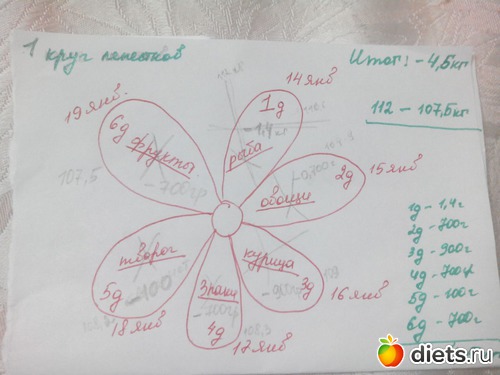 1 круг лепестков
Итог: -4,5кг
112 – 107,5кг
14 янв
1д
-1,4 кг
рыба
15 янв
2д
овощи
-0,700г
16 янв
3д
курица
17 янв
4д
Злаки
18 янв
5д
творог
-100
19 янв.
6д
фрукты
-700гр
107,5
1д - 1,4г
2д - 700г
3д - 900г
4д - 700г
5д - 100г
6д - 700г
diets.ru